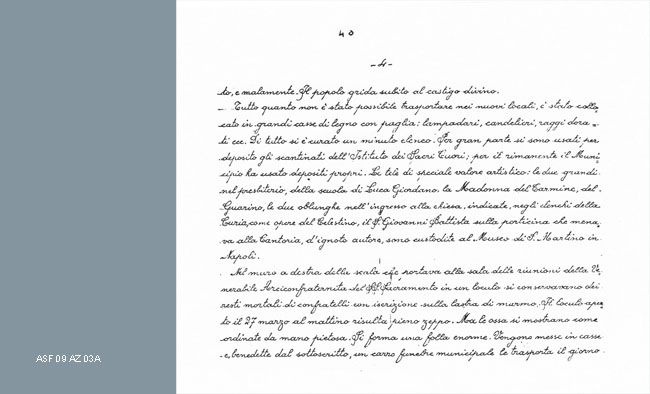 40
-4-
to, e malamente. Il popolo grida subito al castigo divino.
_ Tutto quanto non è stato possibile trasportare nei nuovi locali, è stato collo_
cato in grandi casse di legno con paglia: lampadari, candelieri, raggi dora_
ti ecc. Di tutto si è curato un minuto elenco. Per gran parte si sono usati per
deposito gli scantinati dell'Istituto dei Sacri Cuori; per il rimanente il Muni_
cipio ha usato depositi propri. Le tele di speciale valore artistico: le due grandi
nel presbiterio, della scuola di Luca Giordano, la Madonna del Carmine, del
Guarino, le due oblunghe nell'ingresso alla chiesa, indicate, negli elenchi della
Curia, come opere del Celestino, il S. Giovanni Battista sulla porticina che mena_
va alla Cantoria, d'ignoto autore, sono custodite al Museo di S. Martino in
Napoli.
Nel muro a destra delle scale che portava alla sala delle riunioni della Ve_
nerabile Arciconfraternita del SS. Sacramento in un loculo si conservavano dei
resti mortali di confratelli con iscrizione sulla lastra di marmo. Il loculo aper_
to il 27 marzo al mattino risulta pieno zeppo. Ma le ossa si mostrano come
ordinate da mano pietosa. Si forma una folla enorme. Vengono messe in casse
e, benedette dal sottoscritto, un carro funebre municipale le trasporta il giorno
ASF 09 AZ 03A